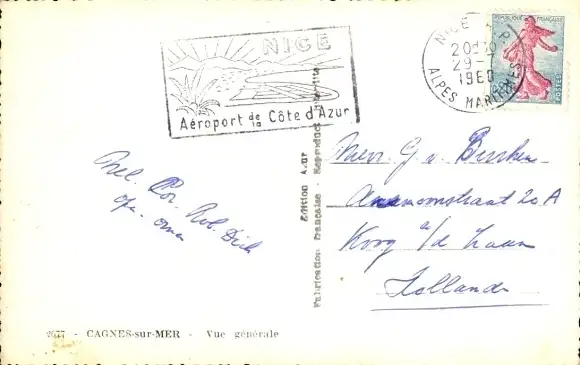 NICE
Aéroport de la Côte d'Azur
NICE R.P.
20H30
29-
1960
ALPES MARITIMES
REPUBLIQUE FRANÇAISE
POSTES
Nel. Cor. Rob. Dick
opa - oma
Edition Azur
Fabrication Française - Reproduction Interdite
Mevr. G v.
Anemoonstraat 20 A
Koog a/d Zaan
Holland
2677 - CAGNES-sur-MER - Vue générale